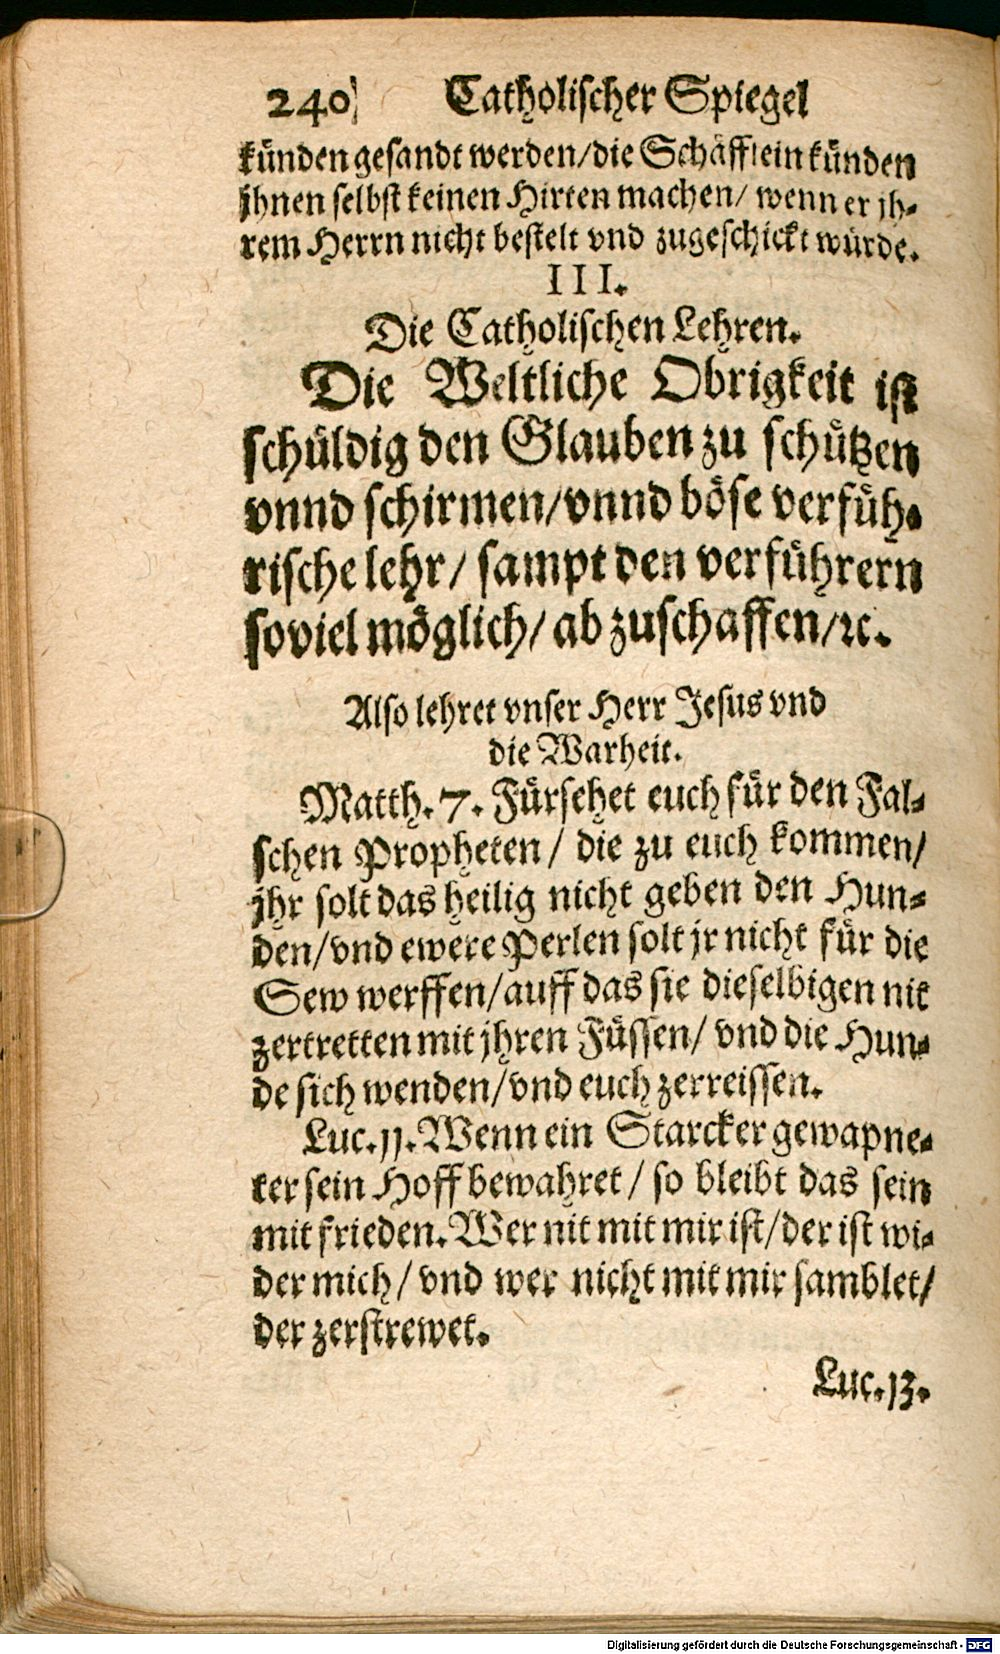 240 Catholischer Spiegel
künden gesandt werden/die Schäfflein künden
jhnen selbst keinen Hirten machen/ wenn er jh-
rem Herrn nicht bestelt vnd zugeschickt würde.
III.
Die Catholischen Lehren.
Die Weltliche Obrigkeit ist
schüldig den Glauben zu schützen
vnnd schirmen/vnnd böse verfüh-
rische lehr/ sampt den verführern
soviel möglich/ ab zuschaffen/ꝛc.
Also lehret vnser Herr Jesus vnd
die Warheit.
Matth. 7. Fürsehet euch für den Fal-
schen Propheten/ die zu euch kommen/
jhr solt das heilig nicht geben den Hun-
den/vnd ewere Perlen solt jr nicht für die
Sew werffen/auff das sie dieselbigen nit
zertretten mit jhren Füssen/ vnd die Hun-
de sich wenden/vnd euch zerreissen.
Luc. 11. Wenn ein Starcker gewapne-
ter sein Hoff bewahret/ so bleibt das sein
mit frieden. Wer nit mit mir ist/der ist wi-
der mich/ vnd wer nicht mit mir samblet/
der zerstrewet.
Luc. 13.
Digitalisierung gefördert durch die Deutsche Forschungsgemeinschaft - DFG